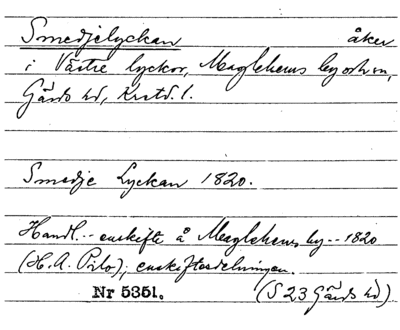 Smedjelyckan åker
i Västre lyckor, Maglehems by o. hn,
Gärds hd, Krstd. l.
Smedje Lyckan 1820.
Handl.-- enskifte å Maglehems by-- 1820
(H. A. Pilo); enskiftesdelningen.
Nr 5351. (S 23 Gärds hd)